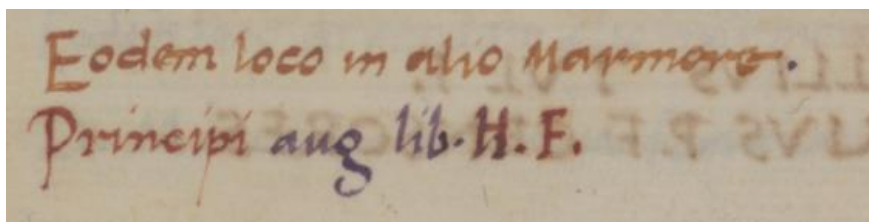 Eodem loco in alio Marmore.
Principi aug lib. H. F.